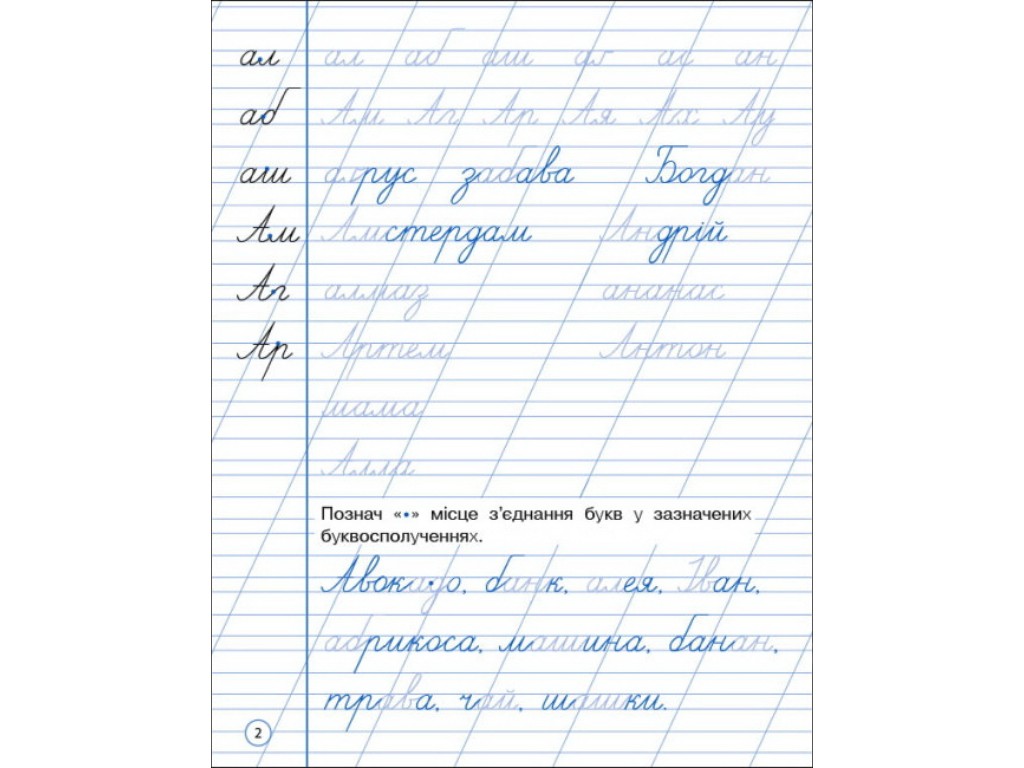 ал ал аб аш аг ас ан
аб Ам Аг Ар Ая Ах Ау
аш парус забава Богдан
Ам Амстердам Андрій
Аг алмаз ананас
Ар Артем Антон
мама
Алла
Познач «•» місце з’єднання букв у зазначених
буквосполученнях.
Авокадо, банк, алея, Іван,
абрикоса, машина, банан,
трава, чай, шашки.
2